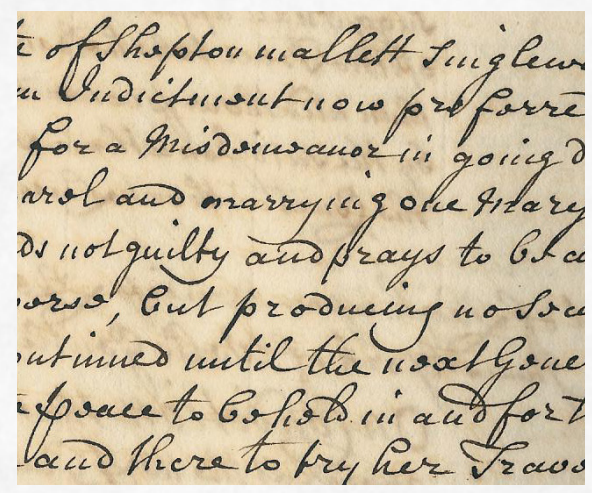 of Shepton mallett Singlewo
Indictment now preferre
for a Misdemeanor in going d
arel and marrying one Mary
ds not guilty and prays to be a
verse, but producing no Secu
ontinued until the next Gene
Peace to be held in and for t
and there to try her Trave